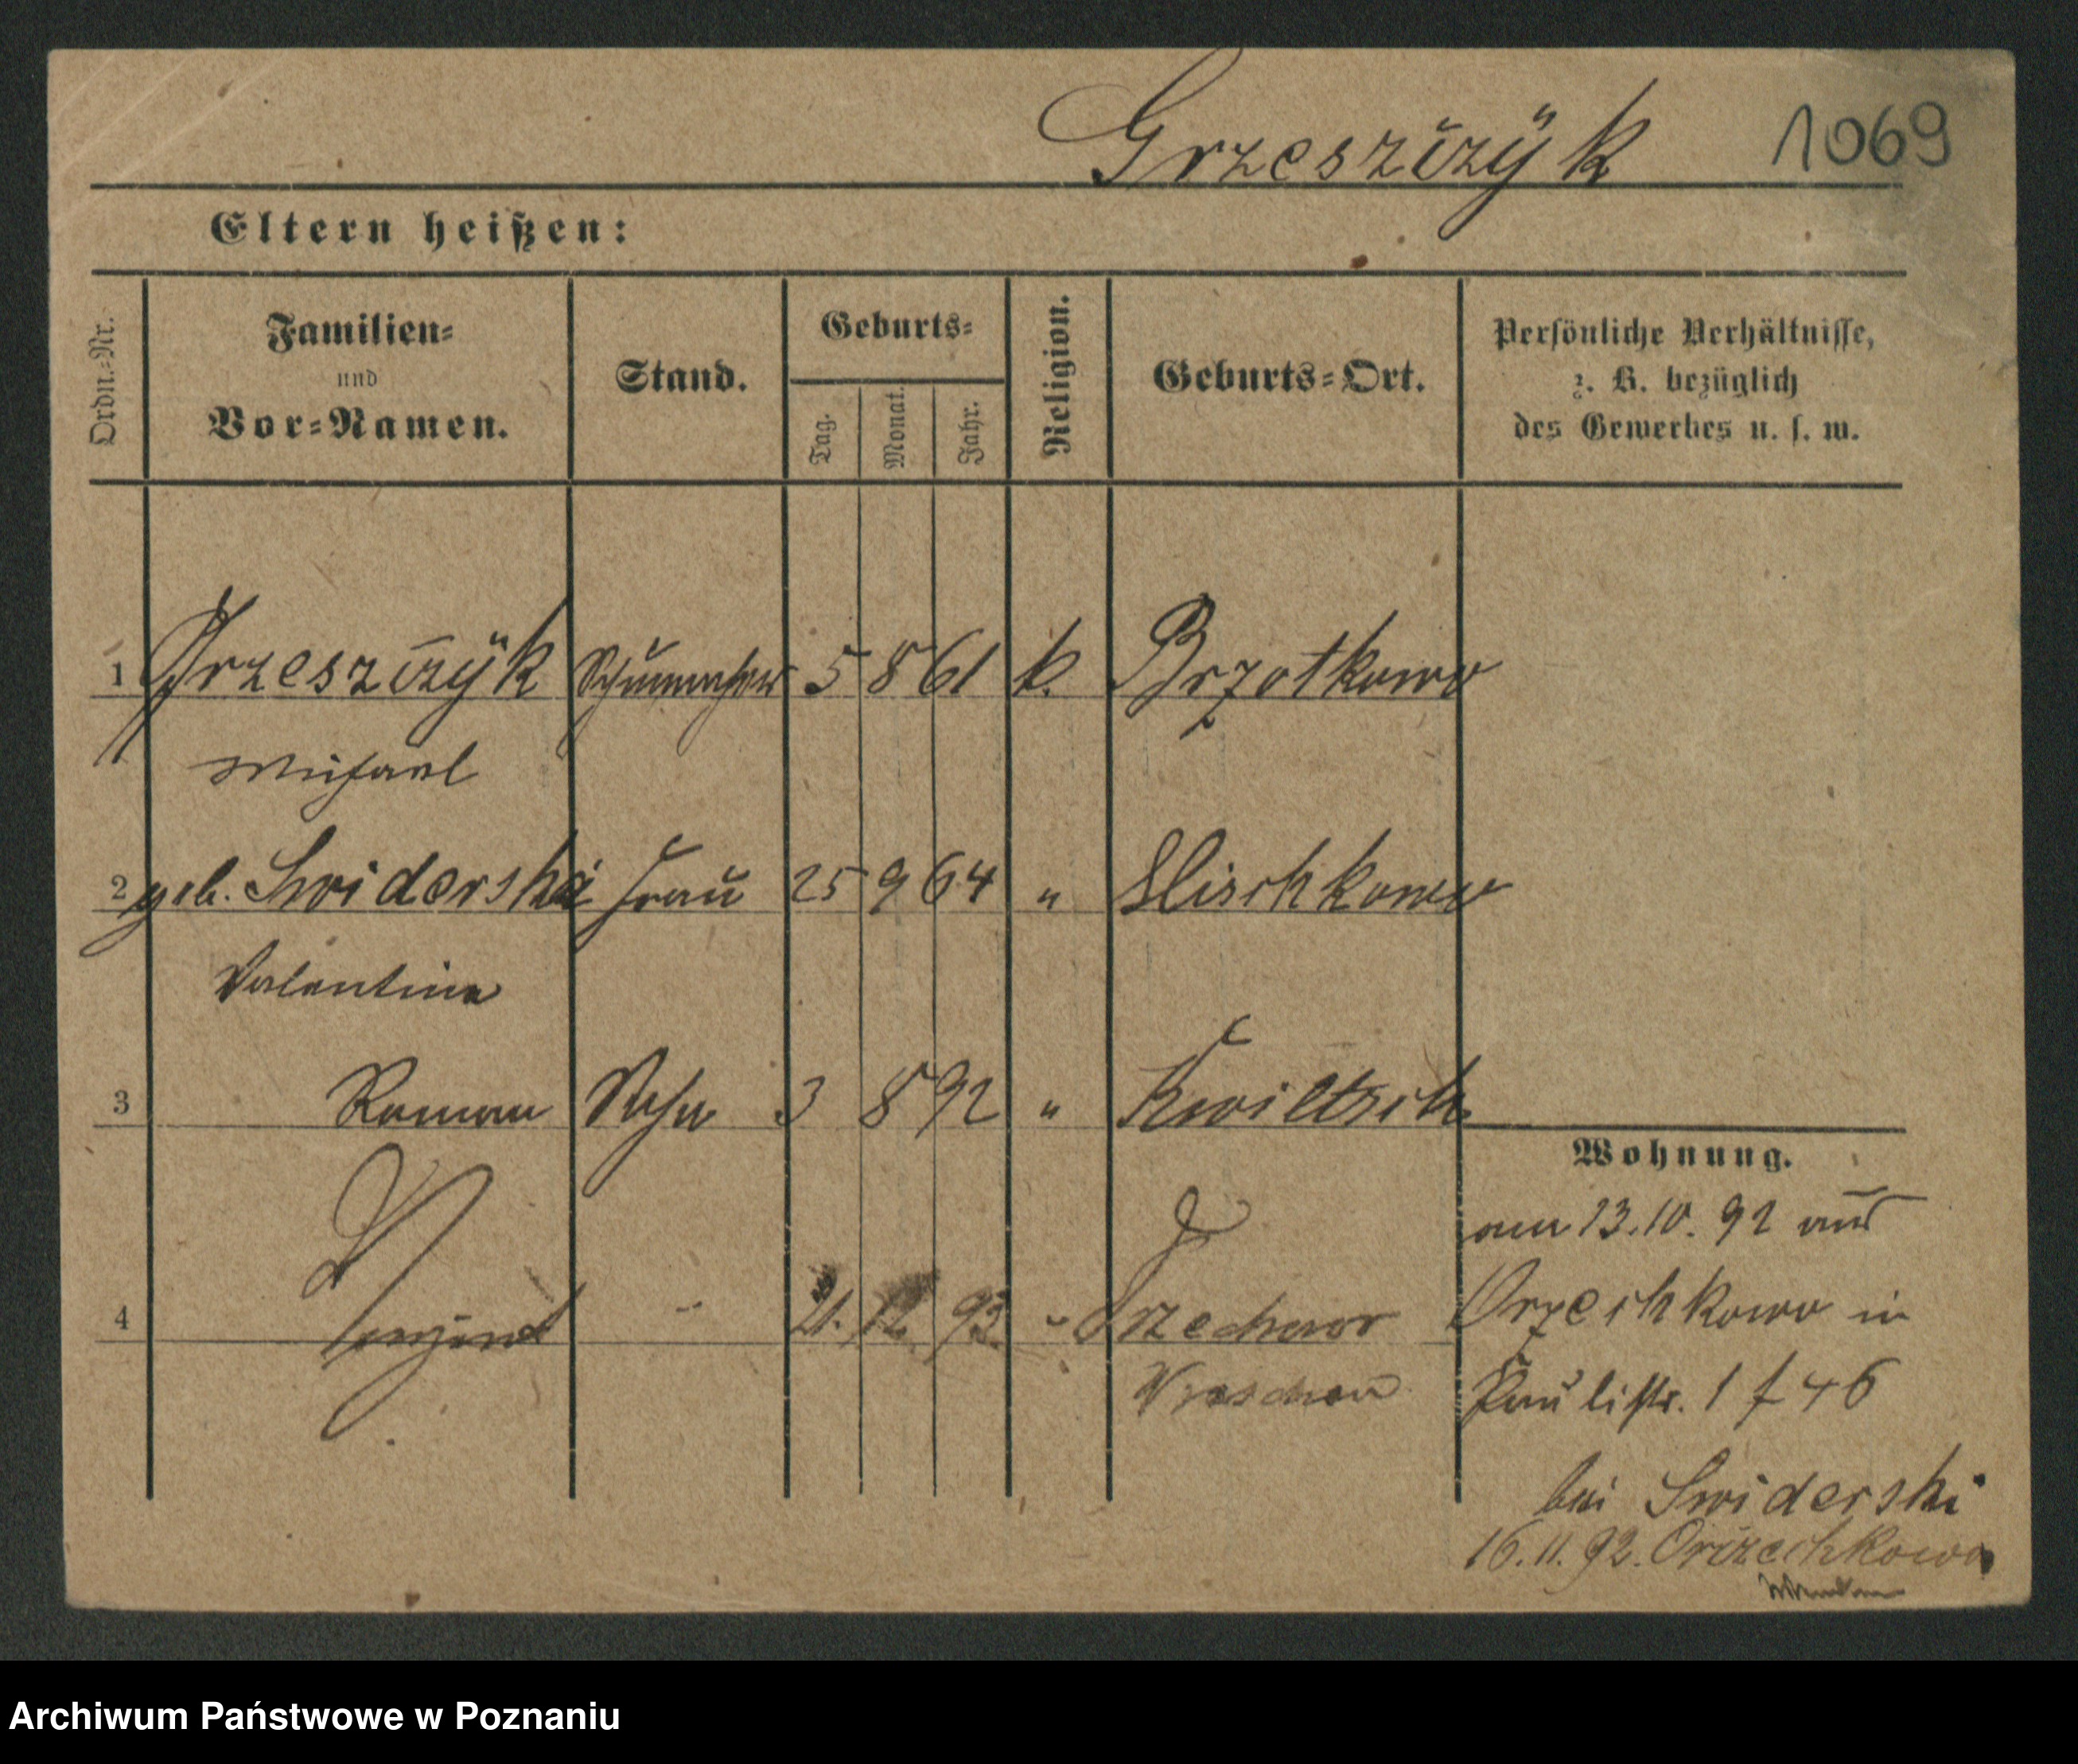 Grzeszczyk 1069
Eltern heißen:
Ordn.-Nr. Familien- und Vor-Namen. Stand. Geburts- Tag. Monat. Jahr. Religion. Geburts-Ort. Persönliche Verhältnisse, z. B. bezüglich des Gewerbes u. s. w.
1 Grzeszczyk Schuhmacher 5 8 61 k. Brzotkowo
Michael
2 geb. Swiderska Frau 25 9 64 "
Valentine
3 Roman Sohn 3 8 92 " Kwiltsch
Wohnung.
am 13.10.92 aus
Orzechkowo in
4 21. 12 93 "
Paulistr. 1
Wreschen
bei Swiderski
16.11.92. Orzechkowo
Archiwum Państwowe w Poznaniu